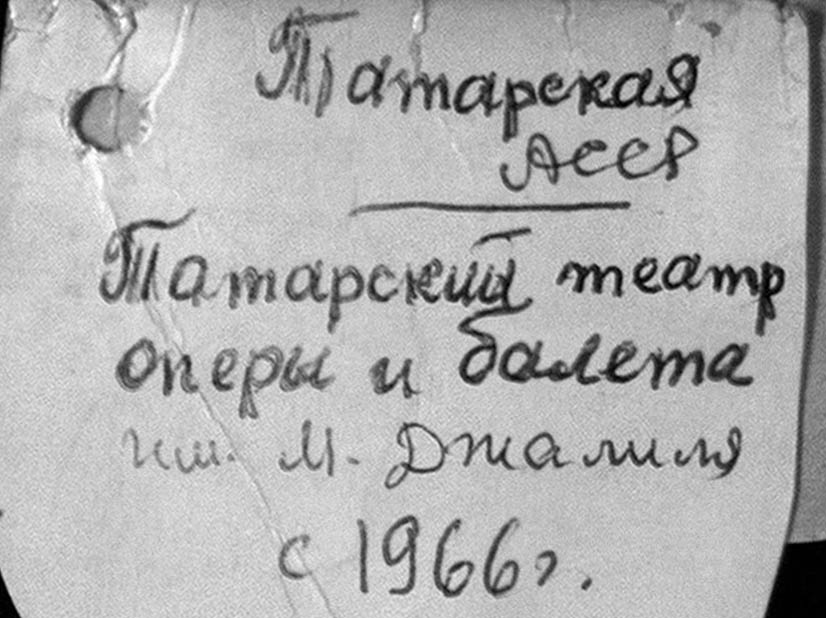 Татарская
АССР
Татарский театр
оперы и балета
им. М. Джалиля
с 1966 г.